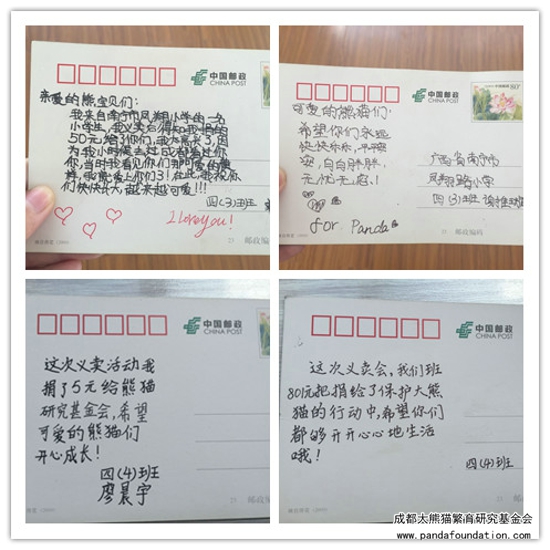 中国邮政
CHINA POST
亲爱的熊宝贝们:
我来自南宁市凤翔小学的一名
小学生,我义卖后得知我捐的
50元给了你们,我太高兴了,因
为我小时候去过成都看过
你,当时我看见你们那可爱的模
样,我就爱上你们了!在此,我祝你
们快快长大,越来越可爱!!!
四(3)班
I love you!
邮政编码
中国邮政
CHINA POST
80分
可爱的熊猫们:
希望你们永远
快快乐乐,平平安
安,白白胖胖,
无忧无虑!
for Panda
广西省南宁市
凤翔路小学
四(3)班
邮政编码
中国邮政
CHINA POST
这次义卖活动我
捐了5元给熊猫
研究基金会,希望
可爱的熊猫们
开心成长!
四(4)班
廖晨宇
邮政编码
中国邮政
CHINA POST
这次义卖会,我们班
801元把捐给了保护大熊
猫的行动中,希望你们
都够开开心心地生活
哦!
四(4)班
邮政编码
成都大熊猫繁育研究基金会
www.pandafoundation.com